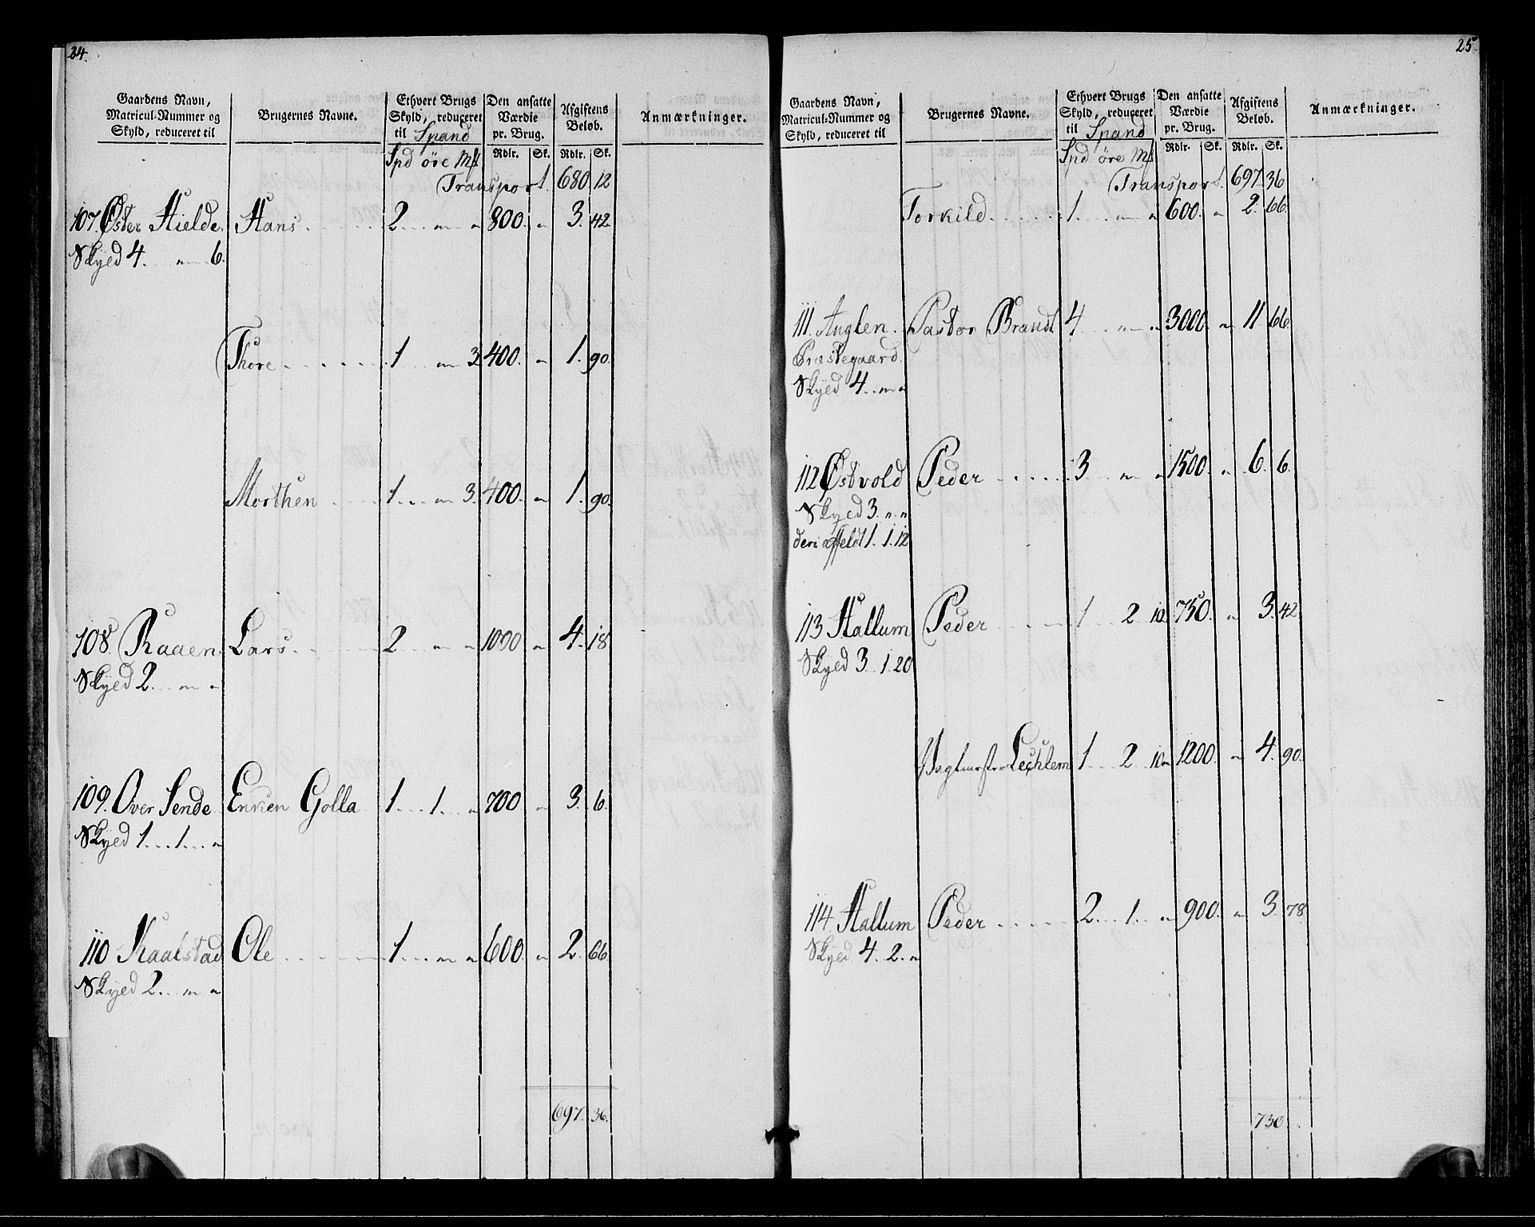 24.
Gaardens Navn, Matricul-Nummer og Skyld, reduceret til
Brugernes Navne.
Ethvert Brugs Skyld, reduceret til Spand
Den ansatte Værdie pr. Brug.
Afgiftens Beløb.
Anmærkninger.
Spd øre Mk Rdlr. Sk. Rdlr. Sk.
Transport. 680. 12
107. Øster Hielde. Hans 2. " " 800. " 3. 42.
Skyed 4. " 6.
Thore 1 " 3. 400. " 1. 90.
Morthen 1. " 3. 400. " 1. 90.
108. Raaen Lars 2 " " 1000 " 4. 18.
Skyed 2. " "
109. Over Sende Enken Golla 1. 1. " 700 " 3. 6.
Skyed 1. 1. "
110 Kaalstad Ole 1. " " 600. " 2. 66
Skyed 2. " "
697. 36.
25.
Gaardens Navn, Matricul-Nummer og Skyld, reduceret til
Brugernes Navne.
Ethvert Brugs Skyld, reduceret til Spand
Den ansatte Værdie pr. Brug.
Afgiftens Beløb.
Anmærkninger.
Spd øre Mk Rdlr. Sk. Rdlr. Sk.
Transport. 697. 36
Torkild. 1. " " 600. " 2. 66.
111. Auglen. Pastor Brandt 4 " " 3000. " 11 66.
Præstegaard.
Skyed 4. " "
112. Østvold Peder 3 " " 1500. " 6. 6.
Skyed 3. " "
deri 1. 1. 12
113 Hallum Peder 1 2 12. 750. " 3. 42.
Skyed 3. 1 20
Lechlem 1 2 1200. " 4. 90.
114. Hallum Peder 2. 1. " 900. " 3. 78.
Skyed 4. 2. "
730.